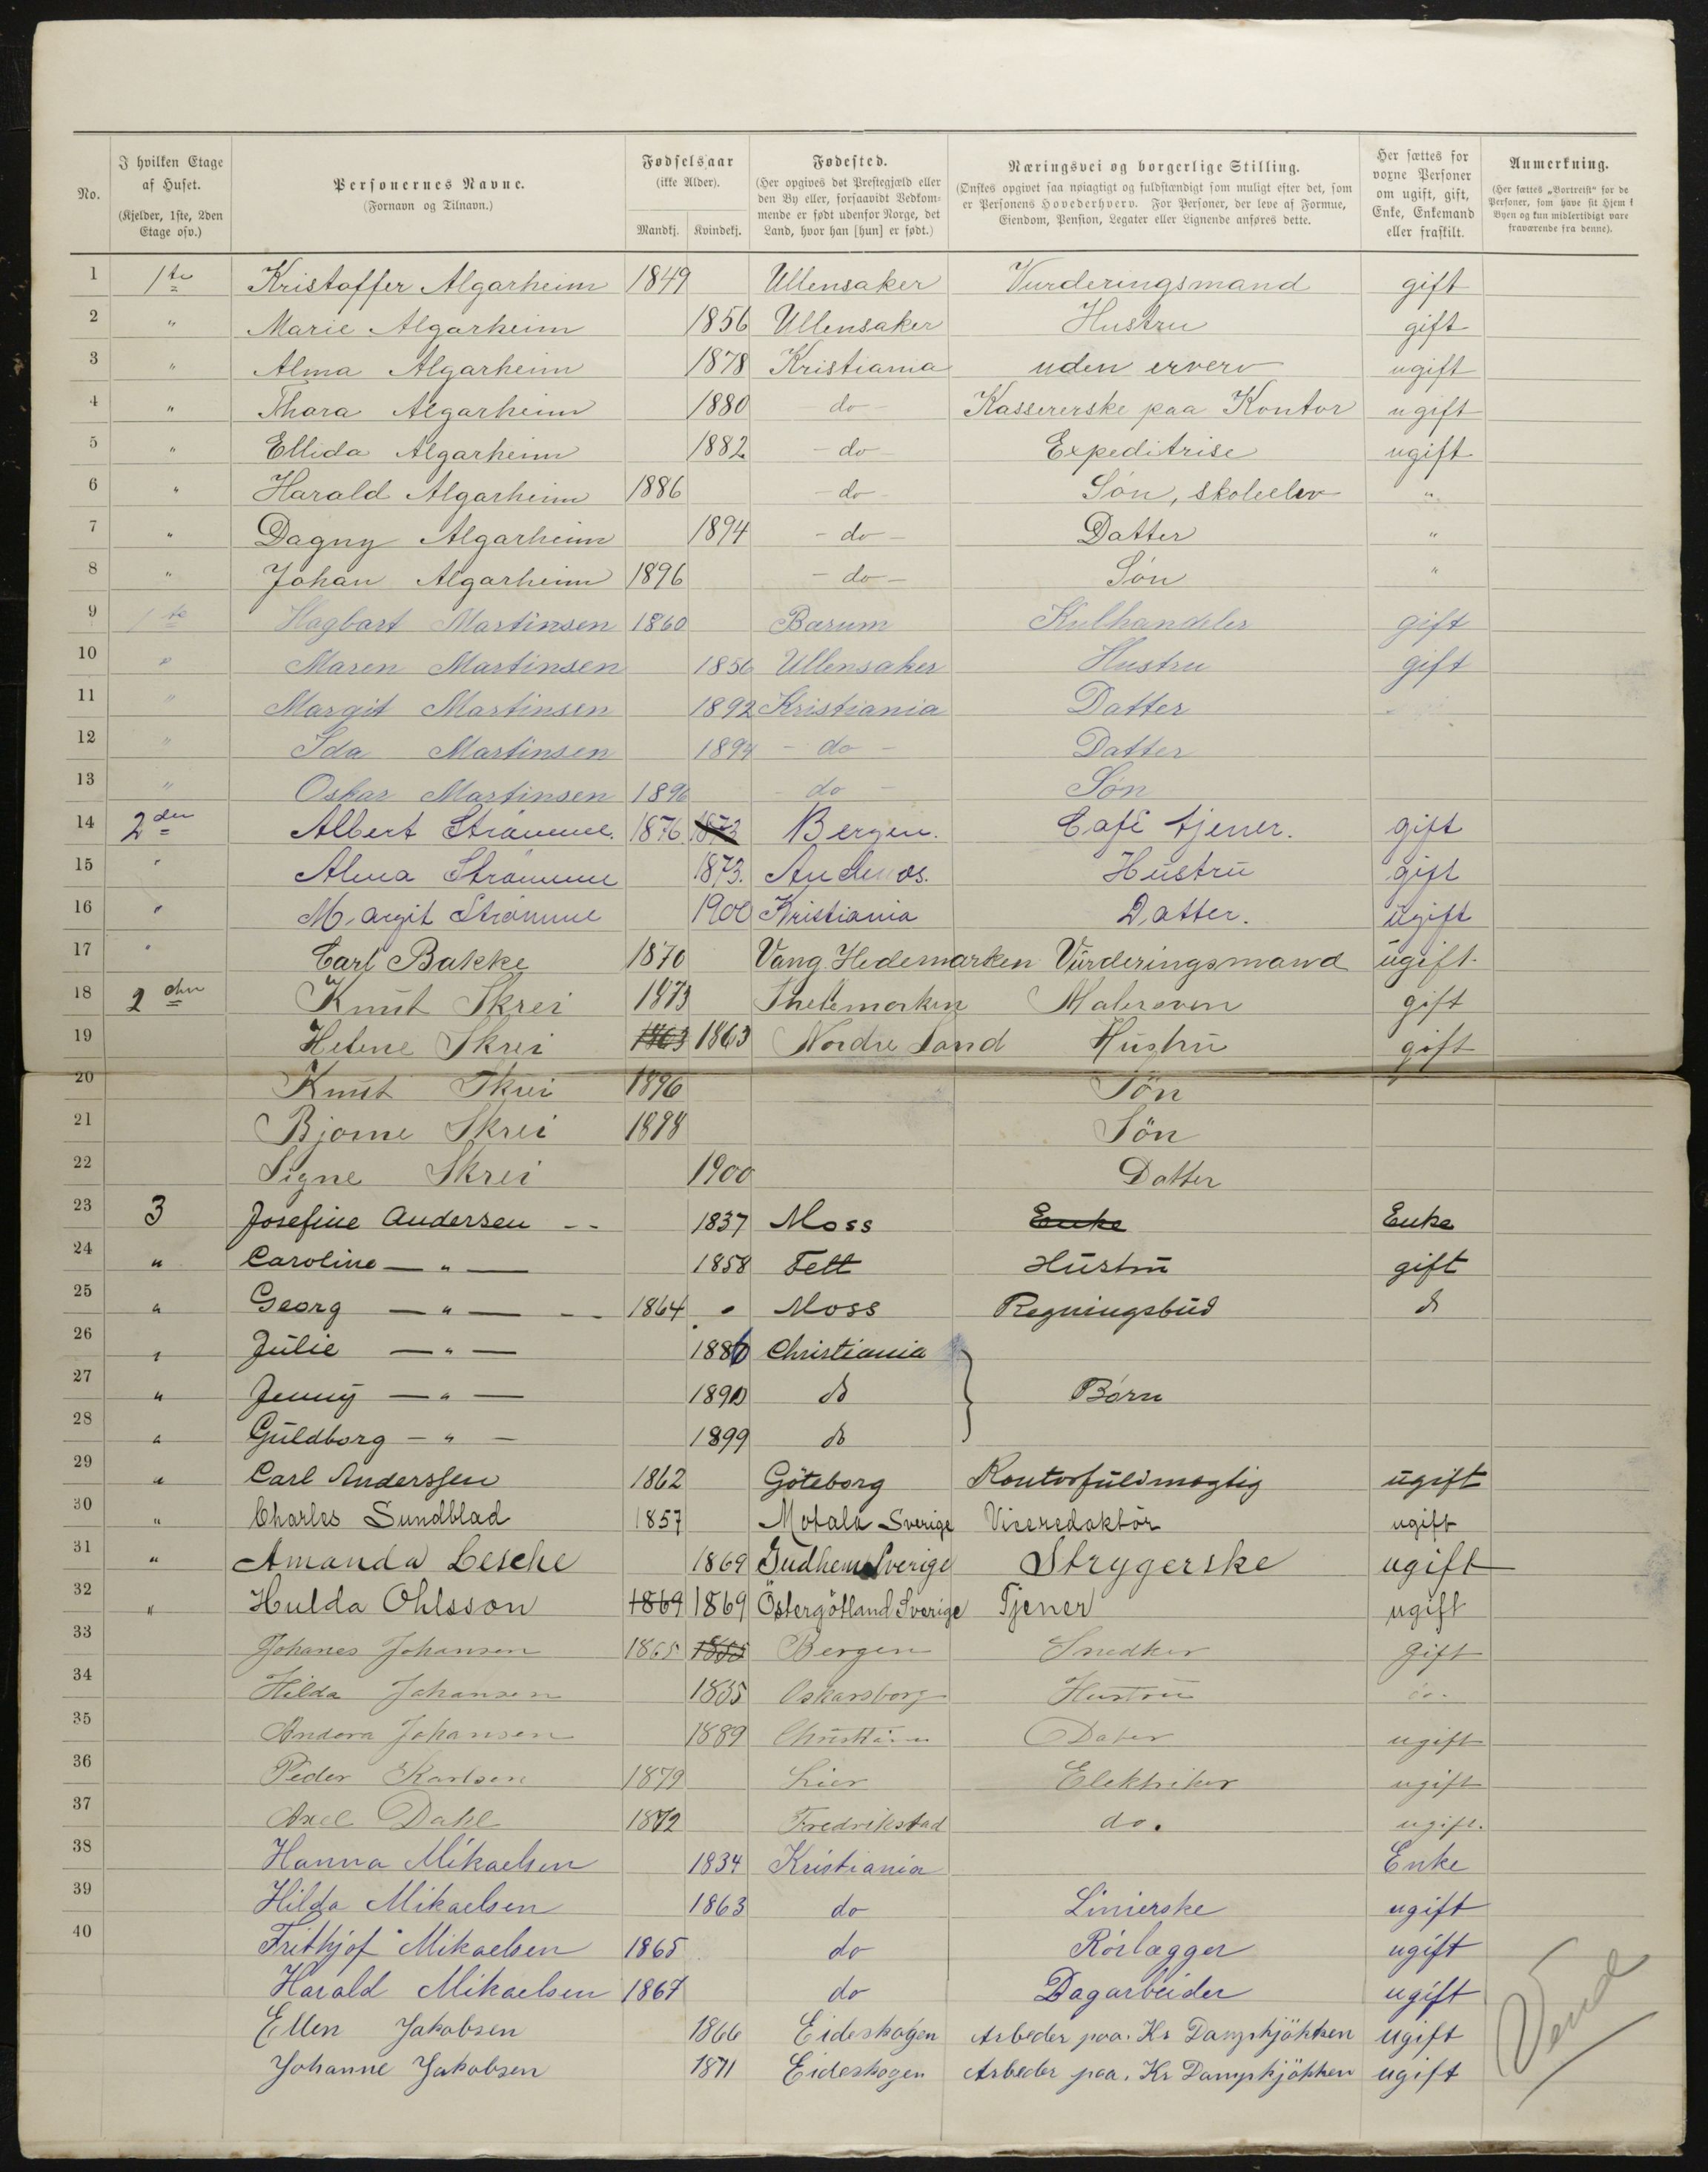 No. I hvilken Etage af Huset. (Kjelder, 1ste, 2den Etage osv.) Personernes Navne. (Fornavn og Tilnavn.) Fødselsaar (ikke Alder). Mandkj. Kvindekj. Fødested. (Her opgives det Prestegjæld eller den By eller, forsaavidt Vedkommende er født udenfor Norge, det Land, hvor han [hun] er født.) Næringsvei og borgerlige Stilling. (Ønskes opgivet saa nøiagtigt og fuldstændigt som muligt efter det, som er Personens Hovederhverv. For Personer, der leve af Formue, Eiendom, Pension, Legater eller Lignende anføres dette. Her sættes for voxne Personer om ugift, gift, Enke, Enkemand eller fraskilt. Anmerkning. (Her sættes „Bortreist“ for de Personer, som have sit Hjem i Byen og kun midlertidigt vare fraværende fra denne).
1 1te Kristoffer Algarheim 1849 Ullensaker Vurderingsmand gift
2 " Marie Algarheim 1856 Ullensaker Hustru gift
3 " Alma Algarheim 1878 Kristiania uden erverv ugift
4 " Thora Algarheim 1880 do - Kassererske paa Kontor ugift
5 " Ellida Algarheim 1882 - do - Expeditrise ugift
6 " Harald Algarheim 1886 - do - Søn, skoleelev "
7 " Dagny Algarheim 1894 - do - Datter "
8 " Johan Algarheim 1896 - do - Søn "
9 1te Hagbart Martinsen 1860 Barum Kulhandeler gift
10 " Maren Martinsen 1856 Ullensaker Hustru gift
11 " Margit Martinsen 1892 Kristiania Datter
12 " Ida Martinsen 1894 - do - Datter
13 " Oskar Martinsen 1896 - do - Søn
14 2den Albert Strømme. 1876. 1873 Bergen. Café tjener. gift
15 " Alma Strømme 1873. Hustru gift
16 " Margit Strømme 1900 Kristiania Datter. ugift
17 " Carl Bakke 1870 Vang Hedemarken Vurderingsmand ugift
18 2den Knut Skrei 1873 Thelemarken Malersven gift
19 Helene Skrei 1863 1863 Nordre Land Hustru gift
20 Knut Skrei 1896 Søn
21 Bjorne Skrei 1898 Søn
22 Signe Skrei 1900 Datter
23 3 Josefine Andersen -- 1837 Moss Enke Enke
24 " Caroline — " — 1858 Fett Hustru gift
25 " Georg — " — - 1864 Moss Regningsbud do
26 " Julie — " — 1886 Christiania
27 " Jenny — " — 1890 do } Børn
28 " Guldborg - " - 1899 do
29 " Carl Anderssen 1862 Göteborg Kontorfuldmægtig ugift
30 " Charles Sundblad 1857 Motala Sverige Viceredaktör ugift
31 " Amanda Lesche 1869 Gudhem Sverige Strygerske ugift
32 " Hulda Ohlsson 1869 1869 Östergötland Sverige Tjener ugift
33 Johanes Johansen 1865 Bergen Snedker gift
34 Hilda Johansen Oskarsborg Hustru do.
35 Andora Johansen 1889 Dater ugift
36 Peder Karlsen 1879 Lier Elektriker ugift
37 Axel Dahl 1872 Fredrikstad do. ugift.
38 Hanna Mikaelsen 1834 Kristiania Enke
39 Hilda Mikaelsen 1863 do Linierske ugift
40 Frithjof Mikaelsen 1865 do Rørlægger ugift
Harald Mikaelsen 1867 do Dagarbeider ugift
Ellen Jakobsen 1866 Eideskogen Arbeder paa. Kr Dampkjökken ugift
Johanne Jakobsen 1871 Eideskogen Arbeder paa. Kr Dampkjökken ugift
Vend